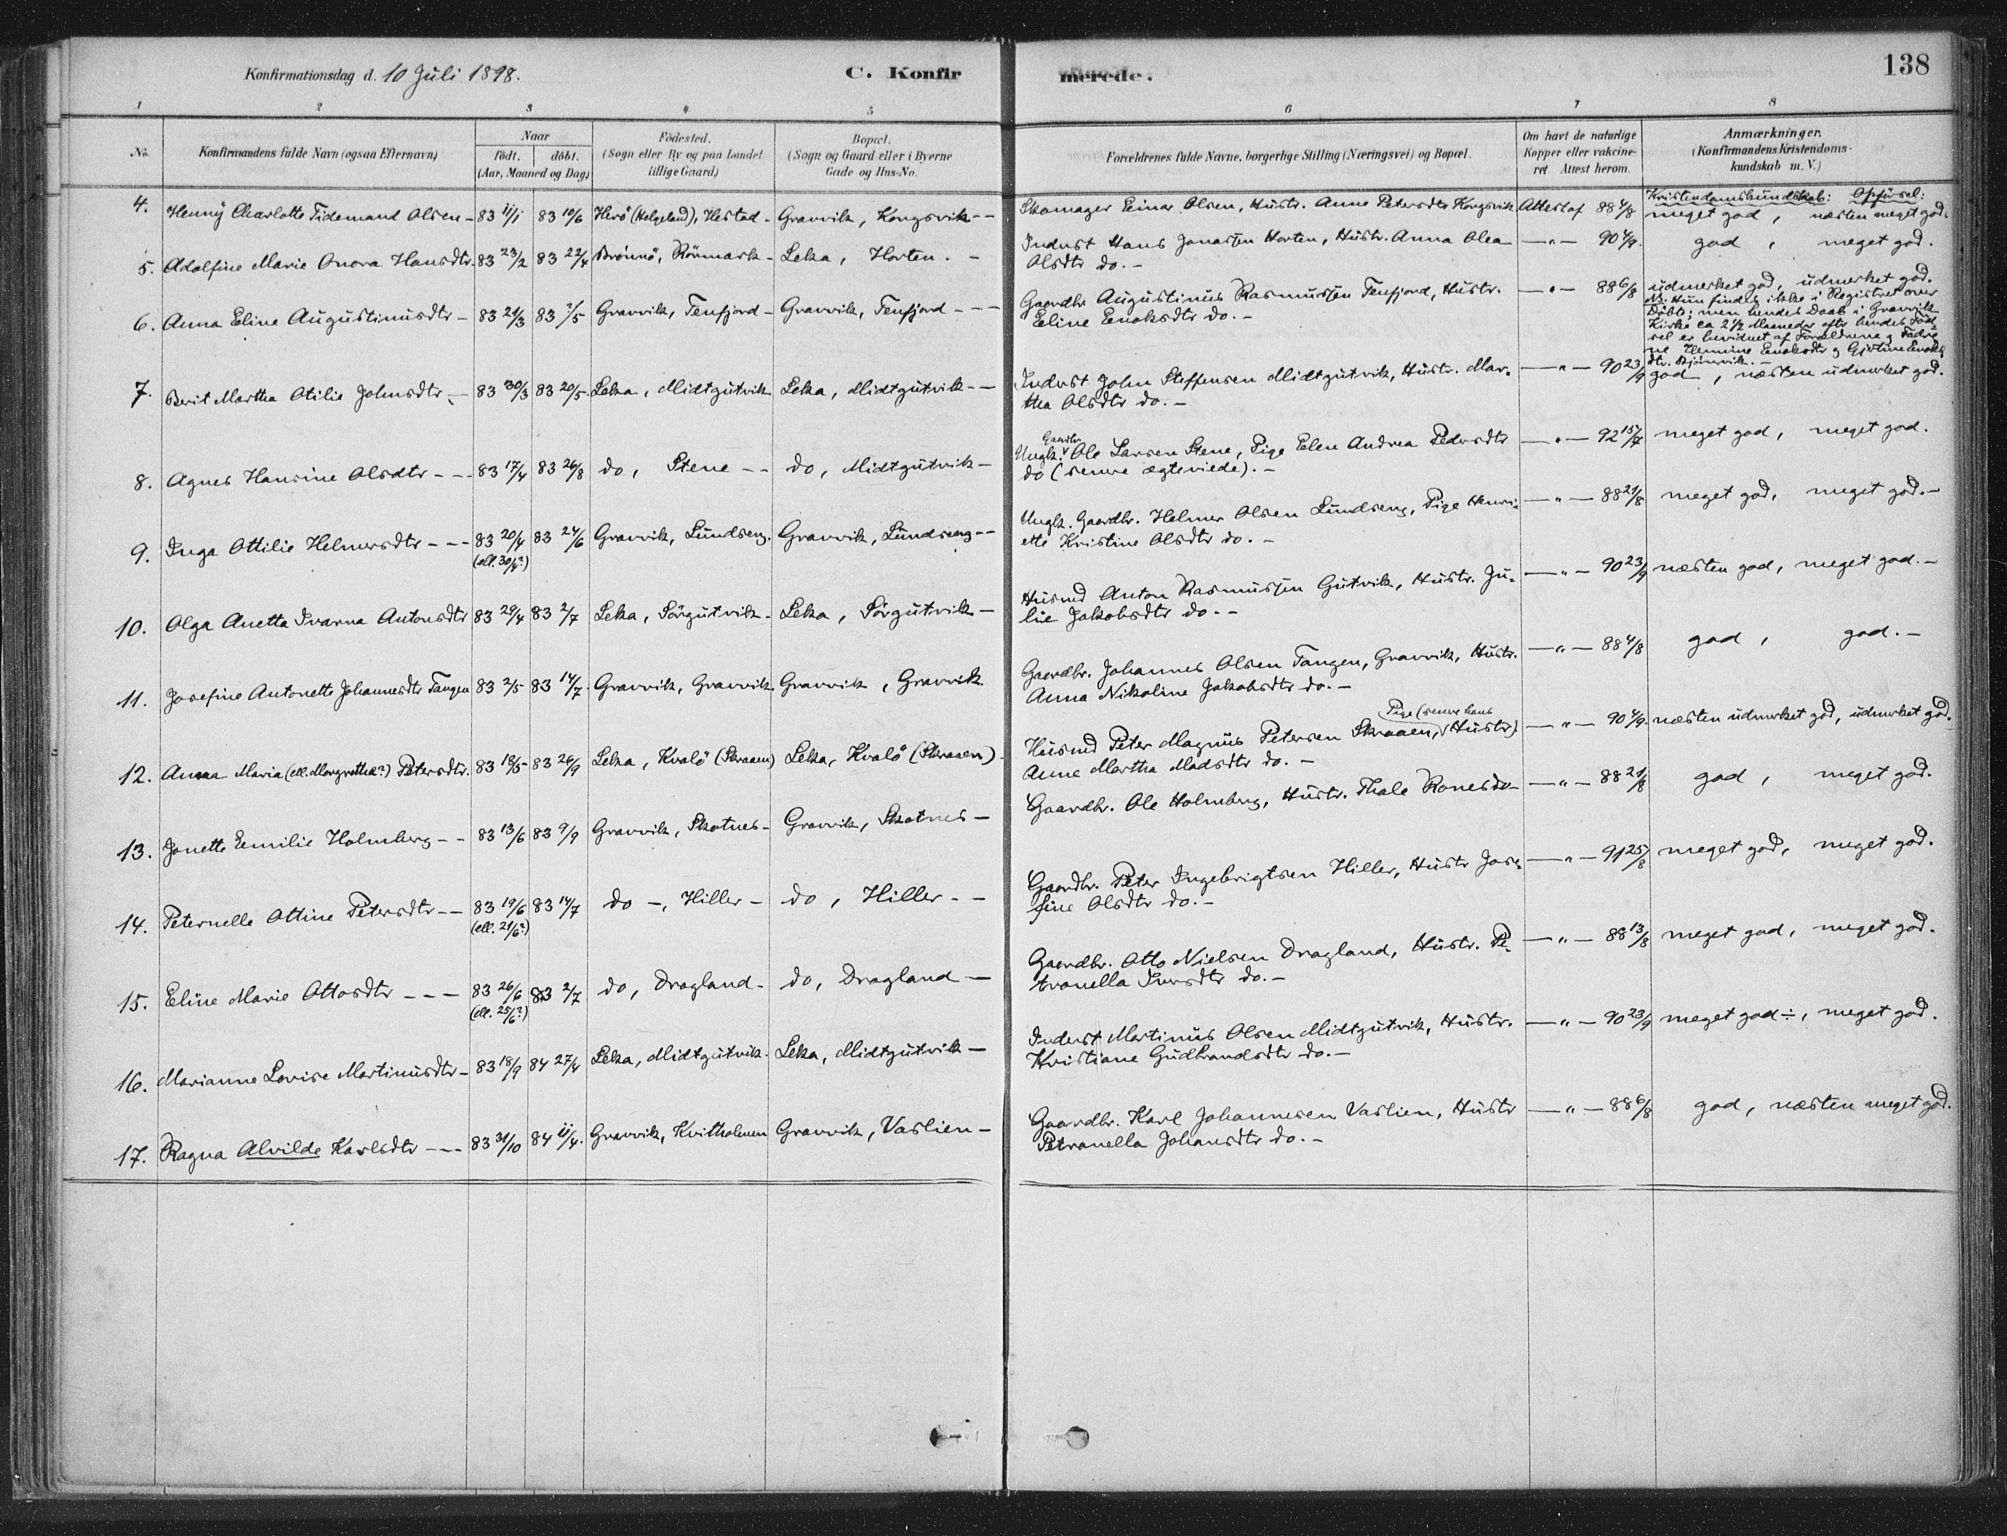 Konfirmationsdag d. 10 Juli 1898.
C. Konfir
merede.
138
1 2 3 4 5 6 7 8
No.
Konfirmandens fulde Navn (ogsaa Efternavn)
Naar
födt. döbt.
(Aar, Maaned og Dag)
Födested.
(Sogn eller By og paa Landet
tillige Gaard)
Bopæl.
(Sogn og Gaard eller i Byerne
Gade og Hus-No.
Forældrenes fulde Navne, borgerlige Stilling (Næringsvei) og Bopæl.
Om havt de naturlige
Kopper eller vakcine-
ret. Attest herom.
Anmærkninger.
(Konfirmandens Kristendoms-
kundskab m. V.)
Kristendomskundskab: Opførsel:
4. Henny Charlotte Tidemand Olsen - 83 11/1 83 10/6 Herö (Helgeland), Hestad - Gravvik, Kongsvik - -
Skomager Einar Olsen, Hustr. Anne Petersdtr Kongsvik Attest af 88 4/8 meget god, næsten meget god.
5. Adolfine Marie Onora Hansdtr. 83 23/2 83 22/4 Brönnö, Rörmark - Leka, Horten. -
Inderst Hans Jonassen Horten, Hustr. Anna Olea — " — 90 4/9. god, meget god.
Olsdtr do. -
6. Anna Eline Augustinusdtr - 83 21/3 83 2/5 Gravvik, Tenfjord - Gravvik, Tenfjord - - -
Gaardbr. Augustinus Rasmussen Tenfjord, Hustr. — " — 88 6/8 udmerket god, udmerket god.
Eline Enoksdtr do. -
Nb. Hun findes ikke i Registret over
Döbte; men hendes Daab i Gravvik
Kirke ca 2 1/2 Maaneder efter hendes Föd-
sel er bevidnet af Forældrene & Fadre-
ne Hermine Enoksdtr & Gjertine Enoks
dtr. Bjönvik. -
7. Berit Martha Otilie Johnsdtr - 83 30/3 83 20/5 Leka, Midtgutvik Leka, Midtgutvik - -
Inderst John Steffensen Midtgutvik, Hustr. Mar- — " — 90 23/9 god, næsten udmerket god.
tha Olsdtr do. -
8. Agnes Hansine Olsdtr - - - 83 17/4 83 26/8 do, Stene - - do, Midtgutvik -
Gaardbr.
Ungk. Ole Larsen Stene, Pige Elen Andrea Pedersdtr — " — 92 15/7 meget god, meget god.
do (senere ægteviede). -
9. Inga Ottilie Helmersdtr - - - 83 20/4 83 24/6 Gravvik, Lundseng. Gravvik, Lundseng - -
(ell. 30/4?)
Ungk. Gaardbr. Helmer Olsen Lundseng, Pige Henri- — " — 88 21/8 meget god, meget god. -
ette Kristine Olsdtr do. -
10. Olga Anetta Ivarna Antonsdtr 83 29/4 83 2/7 Leka, Sörgutvik - Leka, Sörgutvik -
Husmd Anton Rasmussen Gutvik, Hustr. Ju- — " — 90 23/9 næsten god, meget god. -
lie Jakobsdtr do. -
11. Josefine Antonette Johannesdtr Tangen 83 2/5 83 14/7 Gravvik, Gravvik. Gravvik, Gravvik
Gaardbr. Johannes Olsen Tangen, Gravvik, Hustr. — " — 88 4/8 god, god. -
Anna Nikoline Jakobsdtr do. -
12. Anna Maria (ell. Margretha?) Petersdtr. 83 18/5 83 26/9 Leka, Kvalö (Skraaen) Leka, Kvalö (Skraaen)
Pige (senere hans
Husmd Peter Magnus Petersen Skraaen, Hustr) — " — 90 4/9. næsten udmerket god, udmerket god.
Anne Martha Madsdtr do. -
13. Jonette Emilie Holmberg - - 83 13/6 83 9/9 Gravvik, Skotnes - Gravvik, Skotnes -
Gaardbr. Ole Holmberg, Hustr. Thale Ranes do - — " — 88 21/8 god, meget god.
14. Peternelle Ottine Petersdtr - - 83 19/6 83 14/7 do -, Hiller - do, Hiller - -
(ell. 21/6?)
Gaardbr. Peter Ingebrigtsen Hiller, Hustr Jose- — " — 91 25/8 meget god, meget god.
fine Olsdtr do. -
15. Eline Marie Ottosdtr - - - 83 26/6 83 2/7 do, Dragland - do, Dragland -
(ell. 25/6?)
Gaardbr. Otto Nielsen Dragland, Hustr. Pe- — " — 88 13/8 meget god, meget god.
tranella Iversdtr do. -
16. Marianne Lovise Martinusdtr - 83 18/9 84 27/4 Leka, Midtgutvik. Leka, Midtgutvik -
Inderst Martinus Olsen Midtgutvik, Hustr. — " — 90 23/9 meget god ÷, meget god.
Kristiane Gudbrandsdtr do. -
17. Ragna Alvilde Karlsdtr - - - 83 31/10 84 11/4. Gravvik, Kvitholmen Gravvik, Vaslien -
Gaardbr. Karl Johannesen Vaslien, Hustr — " — 88 6/8 god, næsten meget god.
Petranella Johansdtr do. -